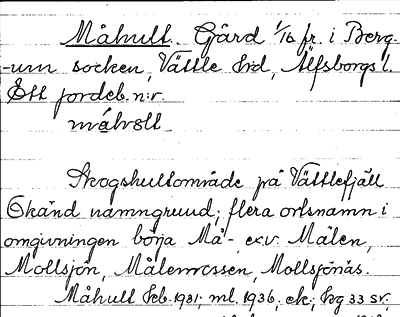 Måhult. Gård 1/16 fr. i Berg-
-um socken, Vättle hd, Älfsborgs l.
Ett jordeb. n:r.
måhvlt
Skogshultområde på Vättlefjäll
Okänd namngrund; flera ortsnamn i
omgivningen börja Må- ex.v. Målen,
Mollsjön, Målemossen, Mollsjönäs.
Måhult Seb. 1931; ml. 1936, ek; hg 33 sv.